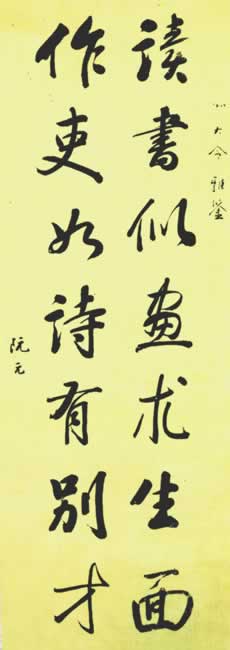 大令雅鑒
讀書似畫求生面
作吏如詩有別才
阮元